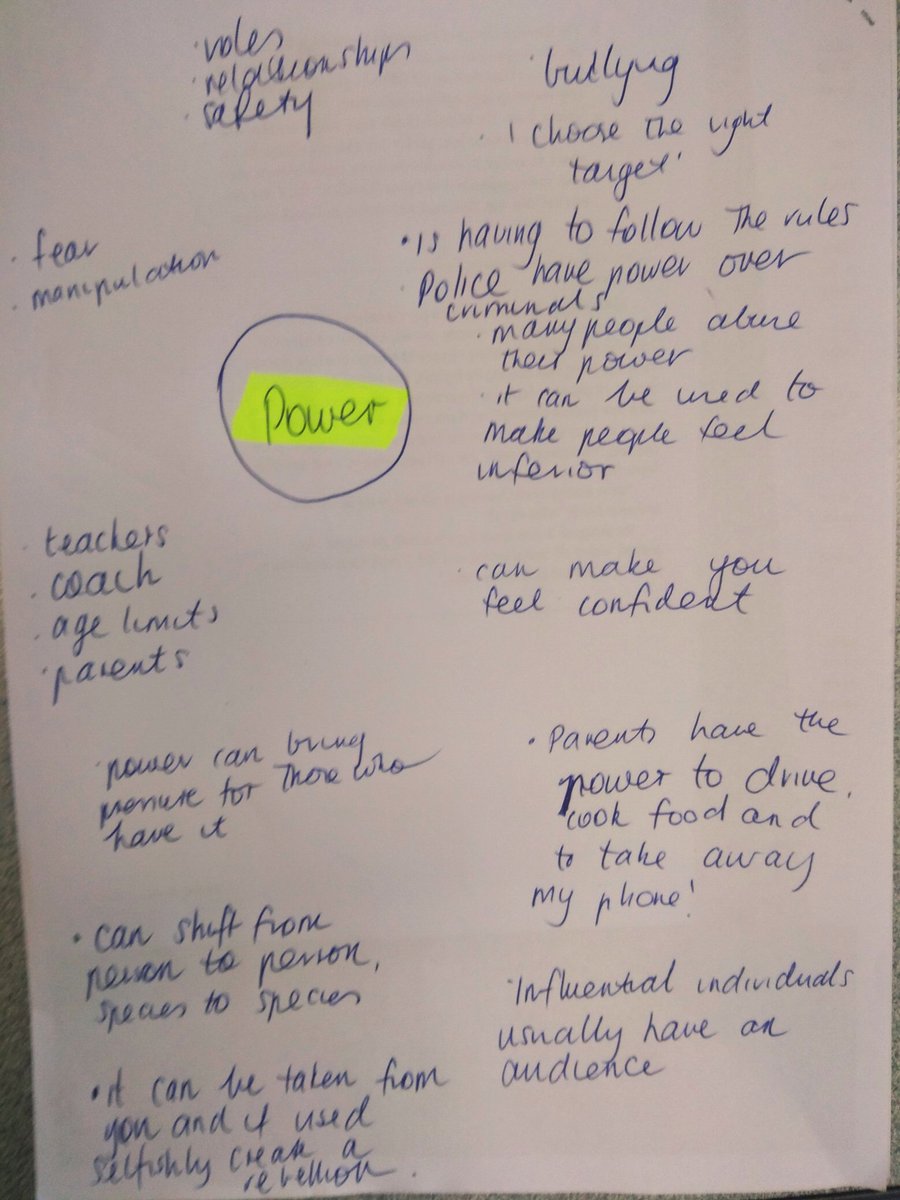 · roles
· relationships
· safety
· bullying
· ' choose the right
target'
· fear
· manipulation
· is having to follow the rules
Police have power over
criminals
· many people abuse
their power
· it can be used to
make people feel
inferior
Power
· teachers
· coach
· age limits
· parents
· can make you
feel confident
· power can bring
pressure for those who
have it
· Parents have the
power to drive,
cook food and
to take away
my phone!
· can shift from
person to person,
species to species
· Influential individuals
usually have an
audience
· it can be taken from
you and if used
selfishly create a
rebellion.